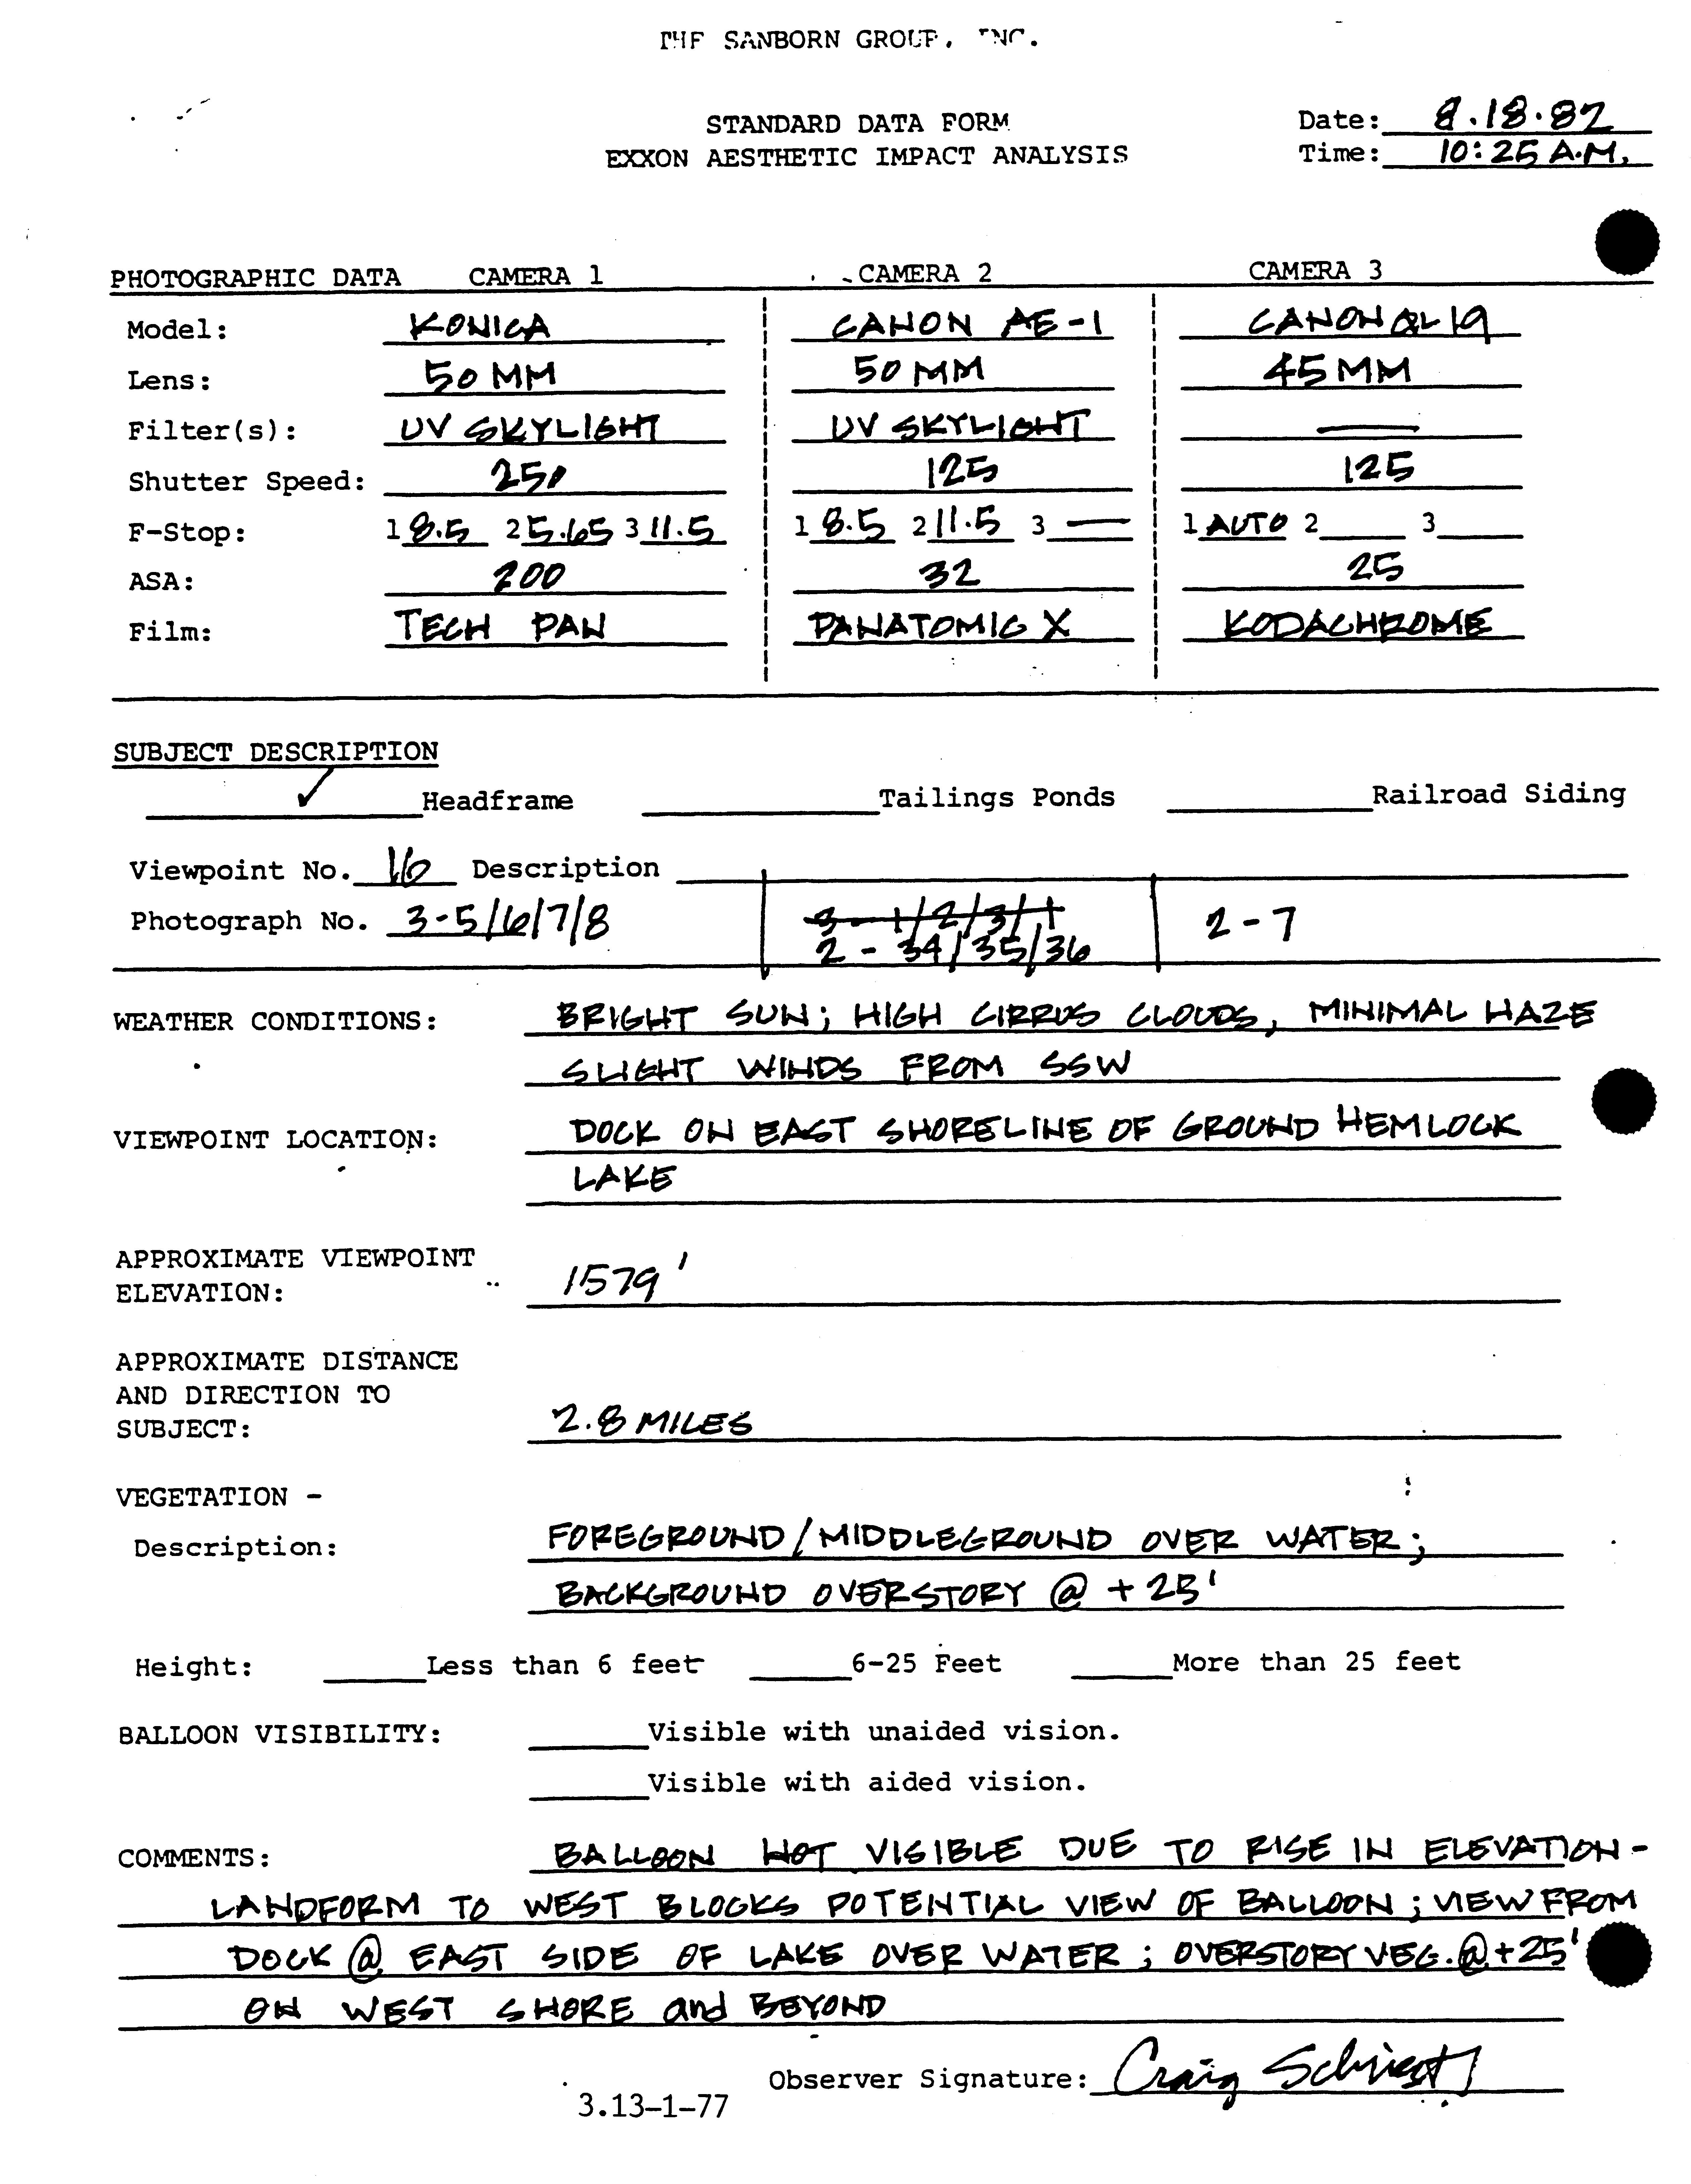 THE SANBORN GROUP, INC.
STANDARD DATA FORM
EXXON AESTHETIC IMPACT ANALYSIS
Date: 8.18.82
Time: 10:25 A.M.
PHOTOGRAPHIC DATA CAMERA 1 CAMERA 2 CAMERA 3
Model: KONICA CANON AE-1 CANON QL19
Lens: 50 MM 50 MM 45 MM
Filter(s): UV SKYLIGHT UV SKYLIGHT —
Shutter Speed: 250 125 125
F-Stop: 1 8.5 2 5.65 3 11.5 1 8.5 2 11.5 3 — 1 AUTO 2 3
ASA: 200 32 25
Film: TECH PAN PANATOMIC X KODACHROME
SUBJECT DESCRIPTION
✓ Headframe Tailings Ponds Railroad Siding
Viewpoint No. 16 Description
Photograph No. 3-5/6/7/8 2 - 34/35/36 2-7
WEATHER CONDITIONS: BRIGHT SUN; HIGH CIRRUS CLOUDS, MINIMAL HAZE
SLIGHT WINDS FROM SSW
VIEWPOINT LOCATION: DOCK ON EAST SHORELINE OF GROUND HEMLOCK
LAKE
APPROXIMATE VIEWPOINT
ELEVATION: 1579'
APPROXIMATE DISTANCE
AND DIRECTION TO
SUBJECT: 2.8 MILES
VEGETATION -
Description: FOREGROUND/MIDDLEGROUND OVER WATER;
BACKGROUND OVERSTORY @ +25'
Height: Less than 6 feet 6-25 Feet More than 25 feet
BALLOON VISIBILITY: Visible with unaided vision.
Visible with aided vision.
COMMENTS: BALLOON NOT VISIBLE DUE TO RISE IN ELEVATION-
LANDFORM TO WEST BLOCKS POTENTIAL VIEW OF BALLOON; VIEW FROM
DOCK @ EAST SIDE OF LAKE OVER WATER; OVERSTORY VEG. @ +25'
ON WEST SHORE and BEYOND
Observer Signature: Craig
3.13-1-77